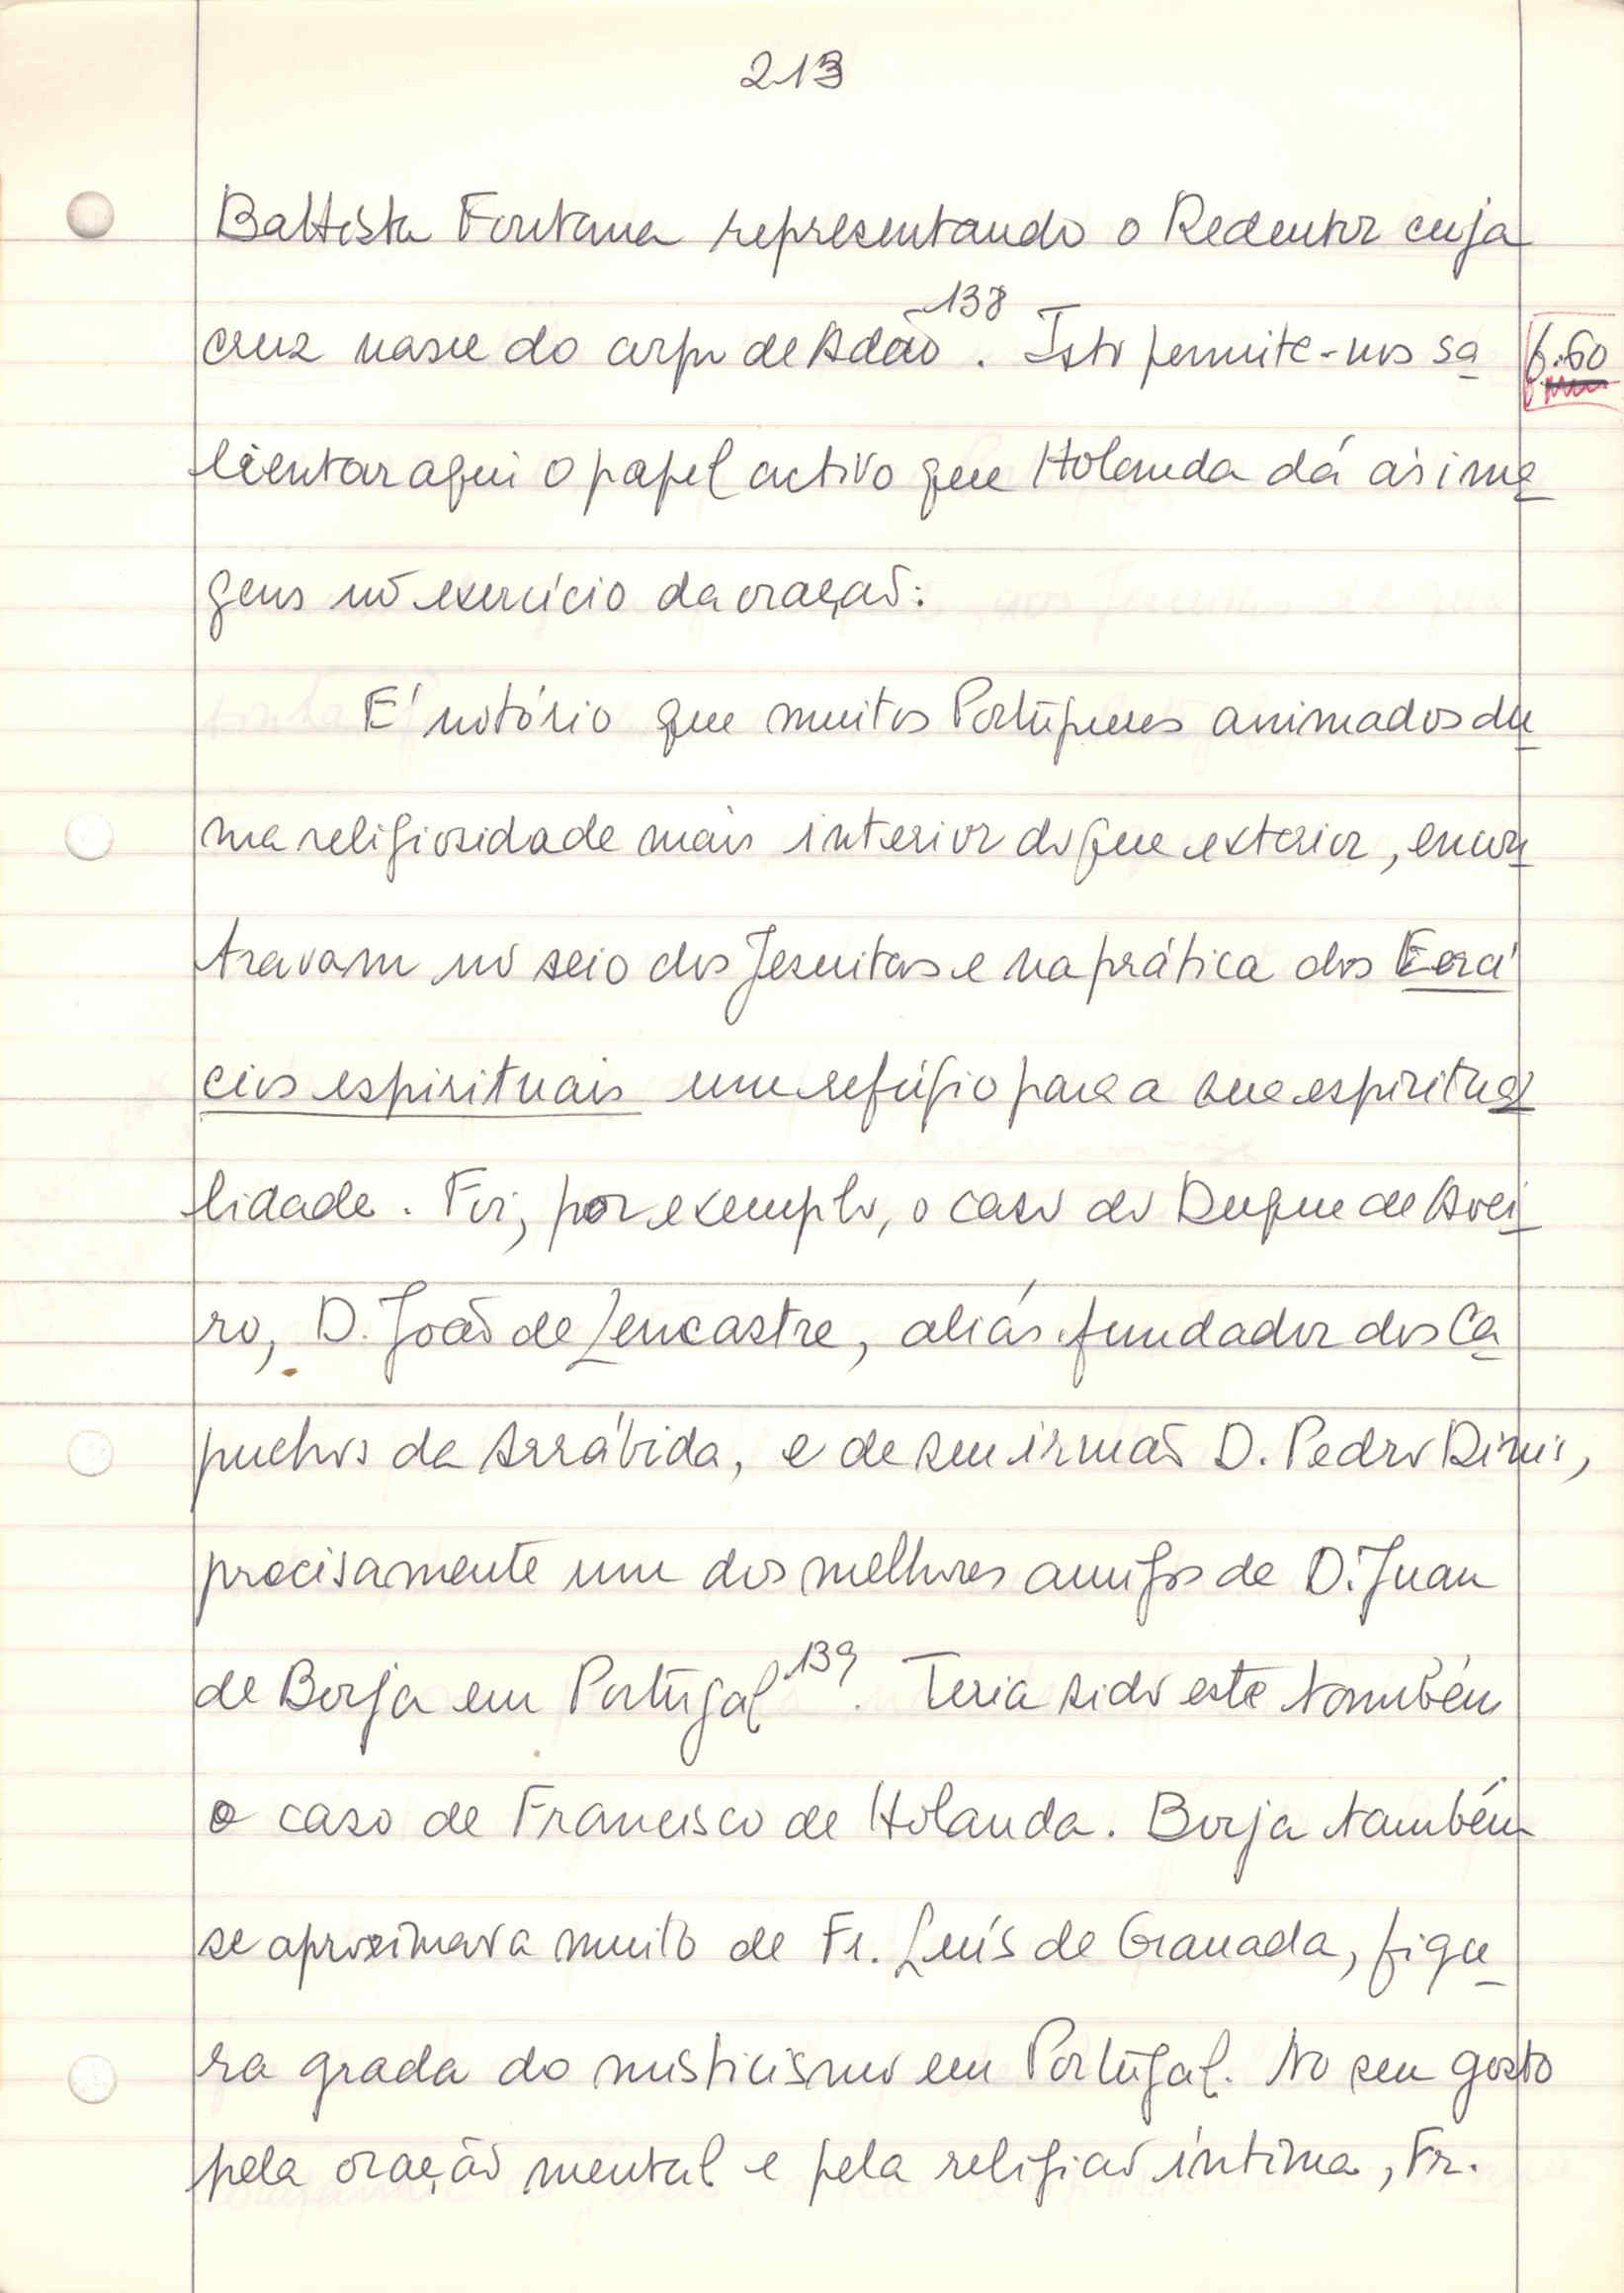 213
Battista Fontana representando o Redentor cuja
cruz nasce do corpo de Adão 138. Isto permite-nos sa
6.60
lientar aqui o papel activo que Holanda dá às ima
gens no exercício da oração:
É notório que muitos Portugueses animados du
ma religiosidade mais interior do que exterior, encon
travam no seio dos Jesuitas e na prática dos Exercí
cios espirituais um refúgio para a sua espiritua
lidade. Foi, por exemplo, o caso do Duque de Avei
ro, D. João de Lencastre, aliás fundador dos Ca
puchos da Arrábida, e de seu irmão D. Pedro Dinis,
precisamente um dos melhores amigos de D. Juan
de Borja em Portugal 139. Teria sido este também
o caso de Francisco de Holanda. Borja também
se aproximava muito de Fr. Luís de Granada, figu
ra grada do misticismo em Portugal. No seu gosto
pela oração mental e pela religião íntima, Fr.